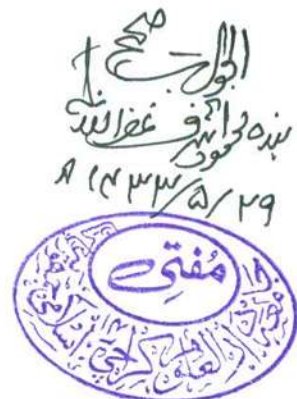 الجواب صحیح
بندہ محمود اشرف غفر اللہ لہ
۲۹/۵/۱۴۳۳ھ
مفتی
جامعہ دارالعلوم کراچی